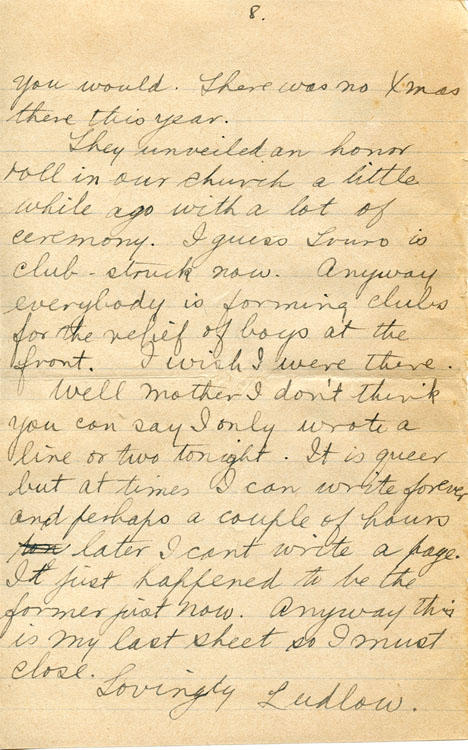 8.
you would. There was no Xmas
there this year.
They unveiled an honor
roll in our church a little
while ago with a lot of
ceremony. I guess Truro is
club-struck now. Anyway
everybody is forming clubs
for the relief of boys at the
front. I wish I were there.
Well mother I don't think
you can say I only wrote a
line or two tonight. It is queer
but at times I can write forever
and perhaps a couple of hours
later I cant write a page.
It just happened to be the
former just now. Anyway this
is my last sheet so I must
close.
Lovingly Ludlow.